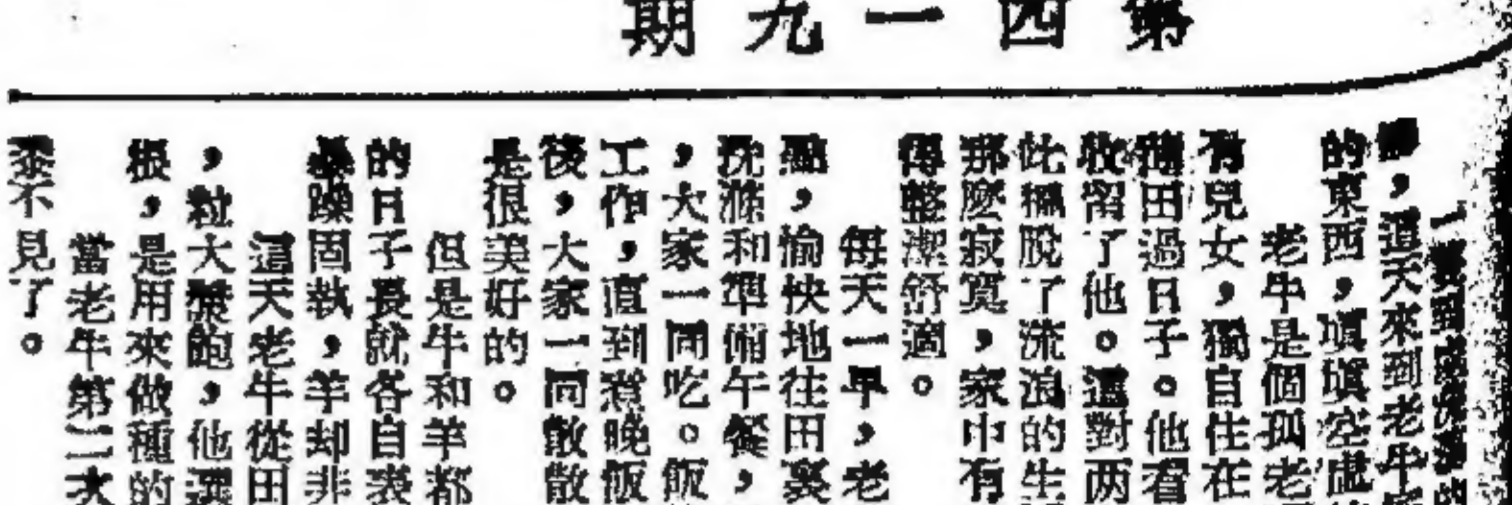 第四一九期
，這天來到老牛
的東西，填填空虛
老牛是個孤老
有兒女，獨自住在
種田過日子。他看
收留了他。這對两
此擺脫了流浪的生
那麼寂寞，家中有
得整潔舒適。
每天一早，老
點，愉快地往田裏
洗滌和準備午餐，
，大家一同吃。飯
工作，直到煮晚飯
後，大家一同散散
是很美好的。
但是牛和羊都
的日子長就各自表
暴躁固執，羊却非
這天老牛從田
，粒大漿飽，他選
根，是用來做種的
當老牛第二次
黍不見了。